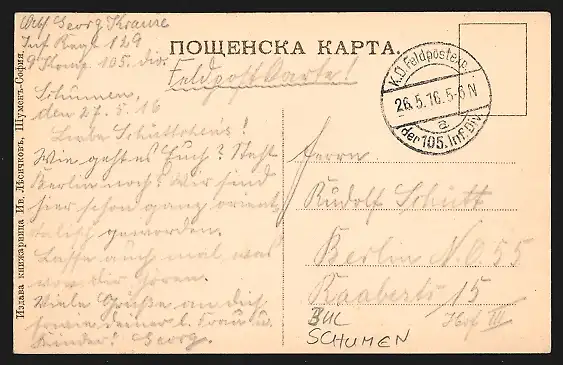 Georg Krause
Inf Regt 129
9 Komp. 105. Div.
ПОЩЕНСКА КАРТА.
Feldpostkarte!
K.D. Feldpostexp.
26.5.16. 5-6 N
a
der 105. Inf. Div.
Schumen,
den 27.5.16
Liebe
Wie geht es Euch? Steht
Berlin noch? Wir sind
hier schon ganz orient-
talisch geworden.
Lasse auch mal was
von dir hören.
Viele Grüße an dich
sowie deiner l. Frau u.
Kinder! Georg.
Herrn
Rudolf Schütt
Berlin N.O. 55
15
Hof III
BUL
SCHUMEN
Издава книжарница Ив. Лѣсичковъ, Шуменъ-София.